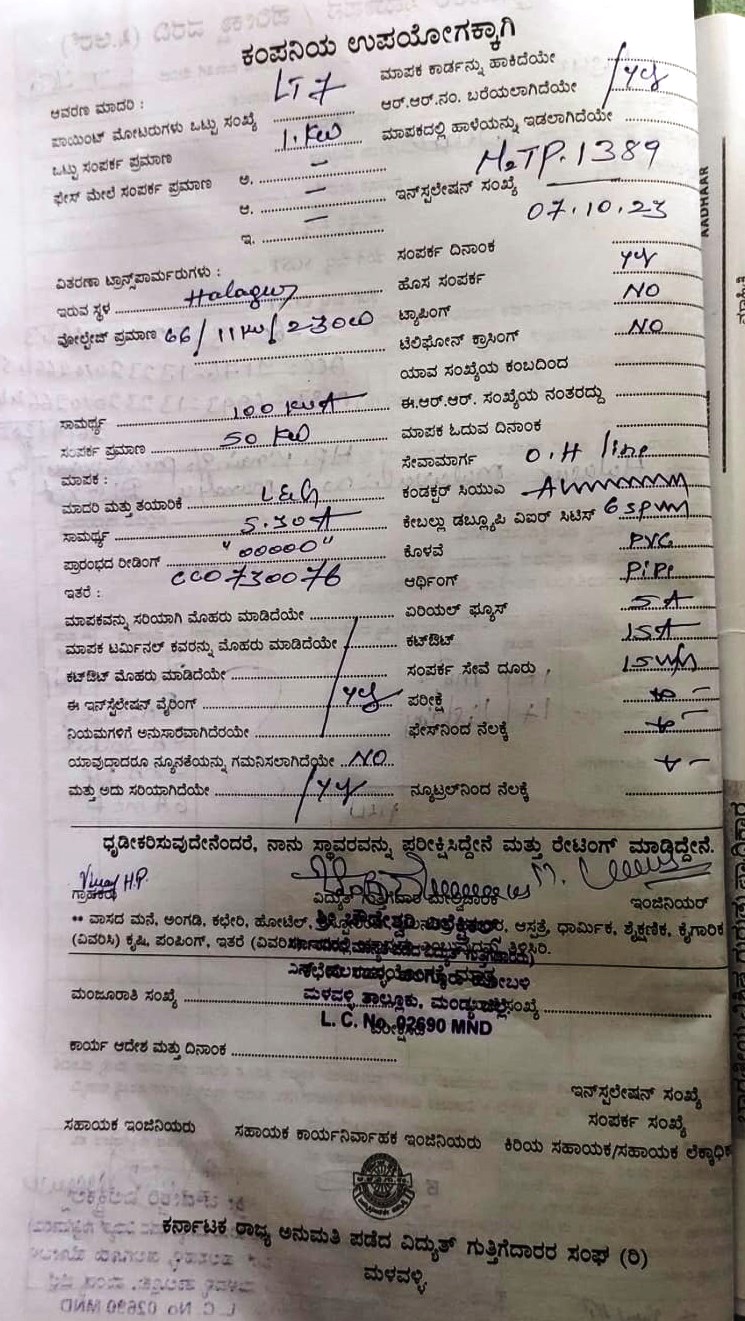 ಕಂಪನಿಯ ಉಪಯೋಗಕ್ಕಾಗಿ
ಆವರಣ ಮಾದರಿ : LT7
ಪಾಯಿಂಟ್ ಮೋಟರುಗಳು ಒಟ್ಟು ಸಂಖ್ಯೆ
ಒಟ್ಟು ಸಂಪರ್ಕ ಪ್ರಮಾಣ 1. KW
ಫೇಸ್ ಮೇಲೆ ಸಂಪರ್ಕ ಪ್ರಮಾಣ ಅ. –
ಆ. –
ಇ. –
ವಿತರಣಾ ಟ್ರಾನ್ಸ್‌ಫಾರ್ಮರುಗಳು :
ಇರುವ ಸ್ಥಳ Halagur
ವೋಲ್ಟೇಜ್ ಪ್ರಮಾಣ 66/11KV/230V
ಸಾಮರ್ಥ್ಯ 100 KVA
ಸಂಪರ್ಕ ಪ್ರಮಾಣ 50 KW
ಮಾಪಕ :
ಮಾದರಿ ಮತ್ತು ತಯಾರಿಕೆ L&G
ಸಾಮರ್ಥ್ಯ 5.30A
ಪ್ರಾರಂಭದ ರೀಡಿಂಗ್ "00000"
ಇತರೆ : CC0730076
ಮಾಪಕವನ್ನು ಸರಿಯಾಗಿ ಮೊಹರು ಮಾಡಿದೆಯೇ
ಮಾಪಕ ಟರ್ಮಿನಲ್ ಕವರನ್ನು ಮೊಹರು ಮಾಡಿದೆಯೇ
ಕಟ್‌ಔಟ್ ಮೊಹರು ಮಾಡಿದೆಯೇ
ಈ ಇನ್‌ಸ್ಟಲೇಷನ್ ವೈರಿಂಗ್ yes
ನಿಯಮಗಳಿಗೆ ಅನುಸಾರವಾಗಿದೆರಯೇ
ಯಾವುದಾದರೂ ನ್ಯೂನತೆಯನ್ನು ಗಮನಿಸಲಾಗಿದೆಯೇ NO
ಮತ್ತು ಅದು ಸರಿಯಾಗಿದೆಯೇ yes
ಮಾಪಕ ಕಾರ್ಡನ್ನು ಹಾಕಿದೆಯೇ
ಆರ್.ಆರ್.ನಂ. ಬರೆಯಲಾಗಿದೆಯೇ yes
ಮಾಪಕದಲ್ಲಿ ಹಾಳೆಯನ್ನು ಇಡಲಾಗಿದೆಯೇ
ಇನ್‌ಸ್ಟಲೇಷನ್ ಸಂಖ್ಯೆ M2TP.1389
07.10.23
ಸಂಪರ್ಕ ದಿನಾಂಕ
ಹೊಸ ಸಂಪರ್ಕ yes
ಟ್ಯಾಪಿಂಗ್ NO
ಟೆಲಿಫೋನ್ ಕ್ರಾಸಿಂಗ್ NO
ಯಾವ ಸಂಖ್ಯೆಯ ಕಂಬದಿಂದ
ಈ.ಆರ್.ಆರ್. ಸಂಖ್ಯೆಯ ನಂತರದ್ದು
ಮಾಪಕ ಓದುವ ದಿನಾಂಕ
ಸೇವಾಮಾರ್ಗ O.H line
ಕಂಡಕ್ಟರ್ ಸಿಯುವಿ
ಕೇಬಲ್ಲು ಡಬ್ಲ್ಯೂಪಿ ವಿಐರ್ ಸಿಟಿಸ್
ಕೊಳವೆ PVC
ಆರ್ಥಿಂಗ್ PiPe
ಏರಿಯಲ್ ಫ್ಯೂಸ್ 5A
ಕಟ್‌ಔಟ್ 15A
ಸಂಪರ್ಕ ಸೇವೆ ದೂರು
ಪರೀಕ್ಷೆ
ಫೇಸ್‌ನಿಂದ ನೆಲಕ್ಕೆ
ನ್ಯೂಟ್ರಲ್‌ನಿಂದ ನೆಲಕ್ಕೆ
ಧೃಢೀಕರಿಸುವುದೇನೆಂದರೆ, ನಾನು ಸ್ಥಾವರವನ್ನು ಪರೀಕ್ಷಿಸಿದ್ದೇನೆ ಮತ್ತು ರೇಟಿಂಗ್ ಮಾಡಿದ್ದೇನೆ.
Vinay H.P.
ಗ್ರಾಹಕರು ವಿದ್ಯುತ್ ಗುತ್ತಿಗೆದಾರ ಮೇಲ್ವಿಚಾರಕ ಇಂಜಿನಿಯರ್
** ವಾಸದ ಮನೆ, ಅಂಗಡಿ, ಕಛೇರಿ, ಹೋಟೆಲ್, ಆಸ್ಪತ್ರೆ, ಧಾರ್ಮಿಕ, ಶೈಕ್ಷಣಿಕ, ಕೈಗಾರಿಕ
(ವಿವರಿಸಿ) ಕೃಷಿ, ಪಂಪಿಂಗ್, ಇತರೆ ತಿಳಿಸಿರಿ.
ಮಳವಳ್ಳಿ ತಾಲ್ಲೂಕು, ಮಂಡ್ಯ ಜಿಲ್ಲೆ
L. C. No. 02690 MND
ಮಂಜೂರಾತಿ ಸಂಖ್ಯೆ
ಕಾರ್ಯ ಆದೇಶ ಮತ್ತು ದಿನಾಂಕ
ಇನ್‌ಸ್ಟಲೇಷನ್ ಸಂಖ್ಯೆ
ಸಂಪರ್ಕ ಸಂಖ್ಯೆ
ಸಹಾಯಕ ಇಂಜಿನಿಯರು ಸಹಾಯಕ ಕಾರ್ಯನಿರ್ವಾಹಕ ಇಂಜಿನಿಯರು ಕಿರಿಯ ಸಹಾಯಕ/ಸಹಾಯಕ ಲೆಕ್ಕಾಧಿಕ
ಕರ್ನಾಟಕ ರಾಜ್ಯ ಅನುಮತಿ ಪಡೆದ ವಿದ್ಯುತ್ ಗುತ್ತಿಗೆದಾರರ ಸಂಘ (ರಿ)
ಮಳವಳ್ಳಿ.
AADHAAR